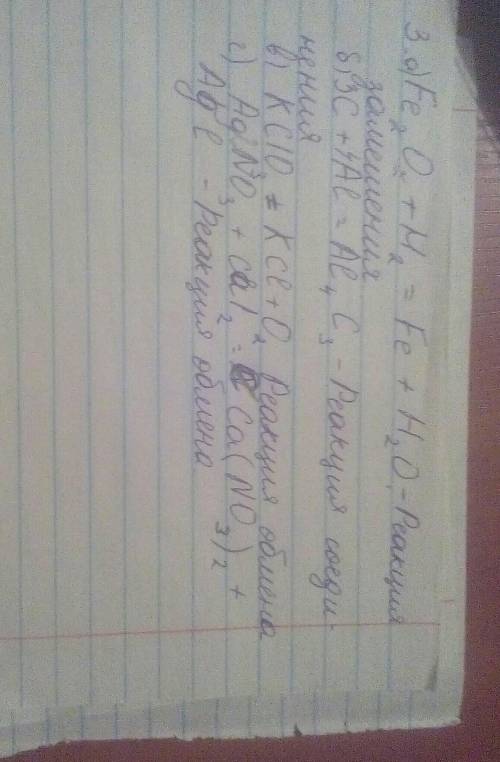 3. а) Fe₂O₃ + H₂ = Fe + H₂O - Реакция
замещения
б) 3C + 4Al = Al₄C₃ - Реакция соеди-
нения
в) KClO₃ = KCl + O₂ Реакция обмена
г) AgNO₃ + CaI₂ = Ca(NO₃)₂ +
AgI - Реакция обмена